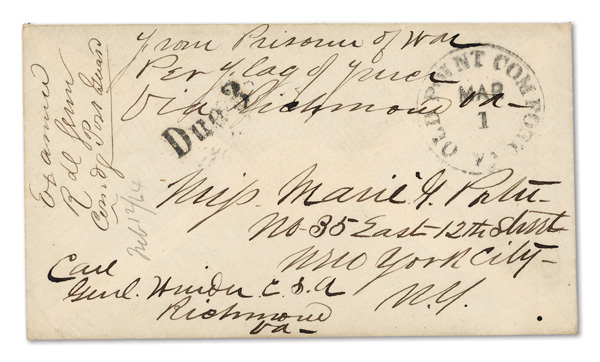 From Prisoner of War
Per Flag of Truce
Via Richmond Va-
OLD POINT COMFORT VA
MAR
1
Due 3
Examined
Comdg Post Guard
Feb 12/64
Miss Marie
No. 35 East 12th Street
New York City-
N.Y.
Care
Genl. Winder C.S.A
Richmond
Va-